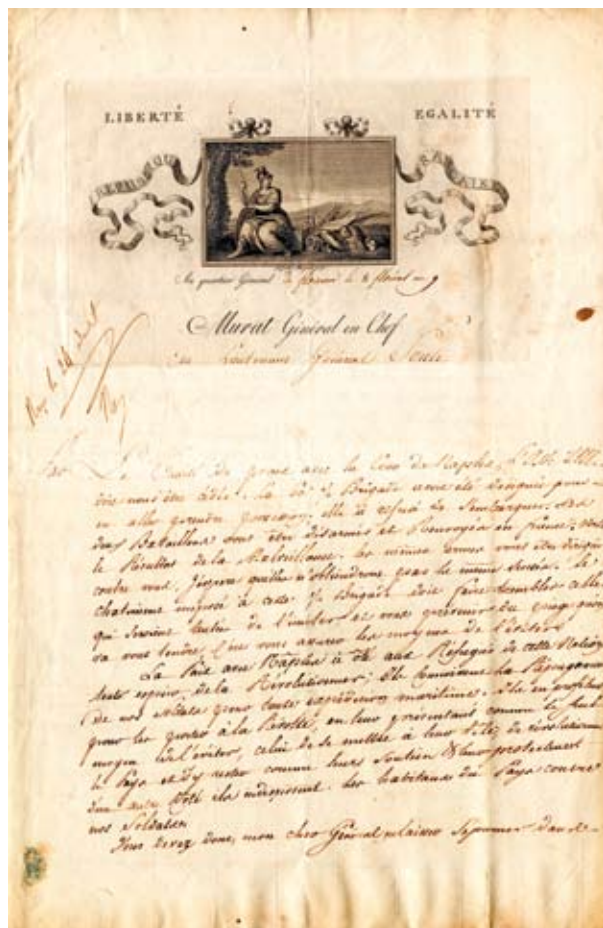 LIBERTÉ EGALITÉ
REPUBLIQUE FRANÇAISE
Au quartier Général de florence le 8 floréal an 9
Murat Général en Chef
au Lieutenant Général Soult
Par Le Traité de paix avec la Cour de Naples, l'Isle d'Elbe
doit nous être cédée. La Brigade avait été désignée pour
en aller prendre possession; elle a refusé de s'embarquer. Ses
deux Bataillons vont être désarmés et Renvoyés en france; voilà
le Résultat de la Malveillance. Les mêmes armes vont être dirigées
contre vous. J'espère qu'elles n'obtiendront pas le même succès. Le
chatiment imposé à cette Brigade doit faire trembler celle
qui serait tentée de l'imiter et vous prévenir du piège qu'on
va vous tendre, c'est vous assurer les moyens de l'éviter.
La Paix avec Naples a ôté aux Réfugiés de cette Nation
tout espoir de la Révolutionner; Ils connaissent la Répugnance
de nos soldats pour toute expédition maritime. Ils en profitent
pour les porter à la Révolte, en leur présentant comme le seul
moyen de l'éviter, celui de se mettre à leur tête, de révolutionner
le Pays et d'y rester comme leurs soutiens & leurs protecteurs
d'un autre Côté ils indisposent les habitans du Pays contre
nos Soldats.
Vous devez donc, mon cher Général,